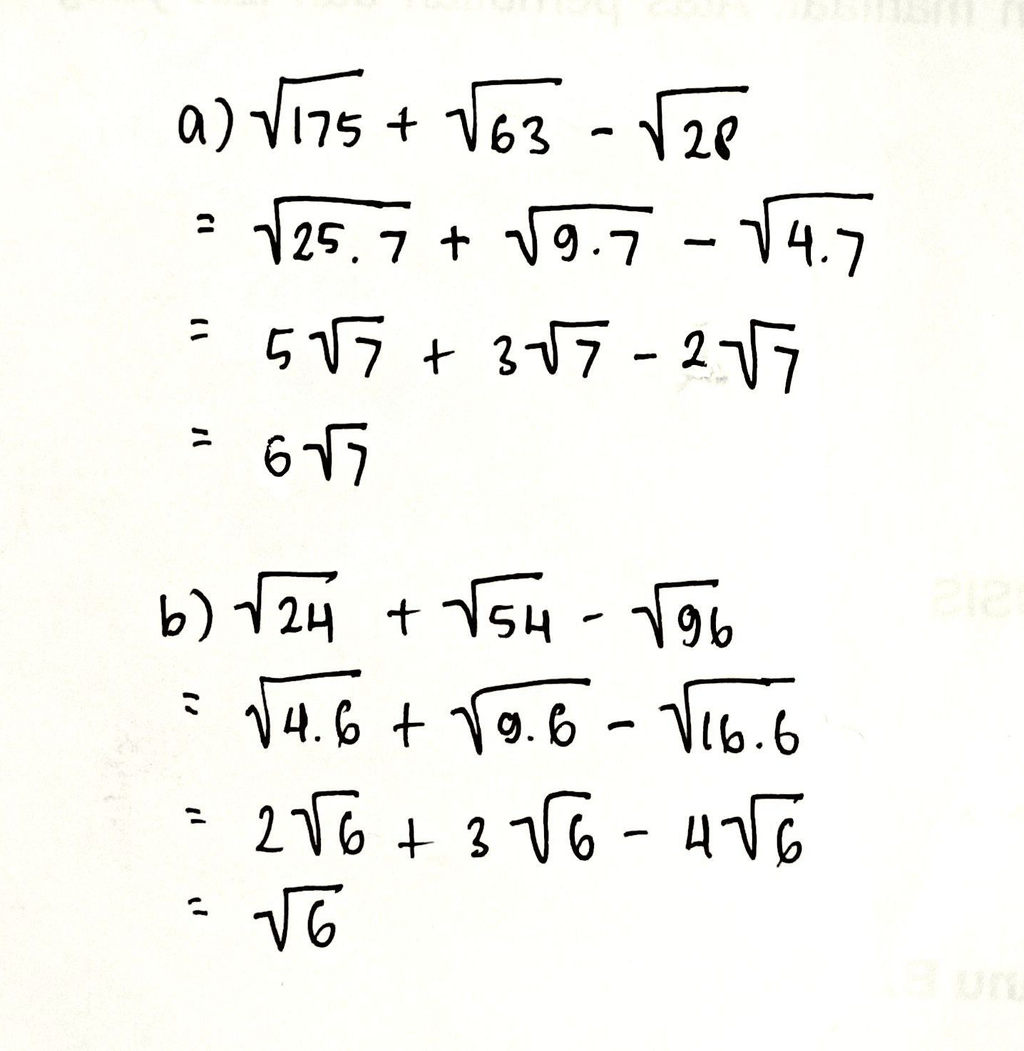 a) √175 + √63 - √28
= √25.7 + √9.7 - √4.7
= 5√7 + 3√7 - 2√7
= 6√7
b) √24 + √54 - √96
= √4.6 + √9.6 - √16.6
= 2√6 + 3√6 - 4√6
= √6